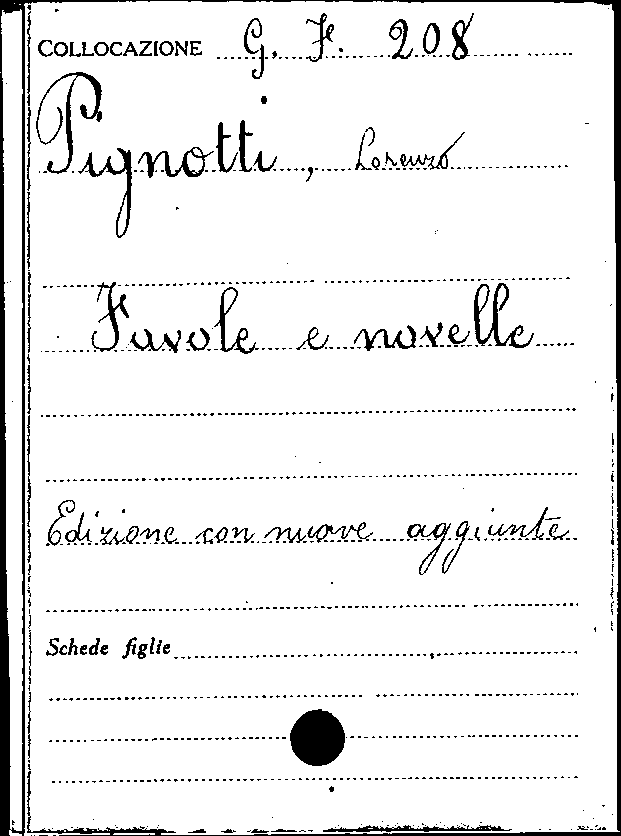 COLLOCAZIONE G. F. 208
Pignotti, Lorenzo
Favole e novelle
Edizione con nuove aggiunte
Schede figlie